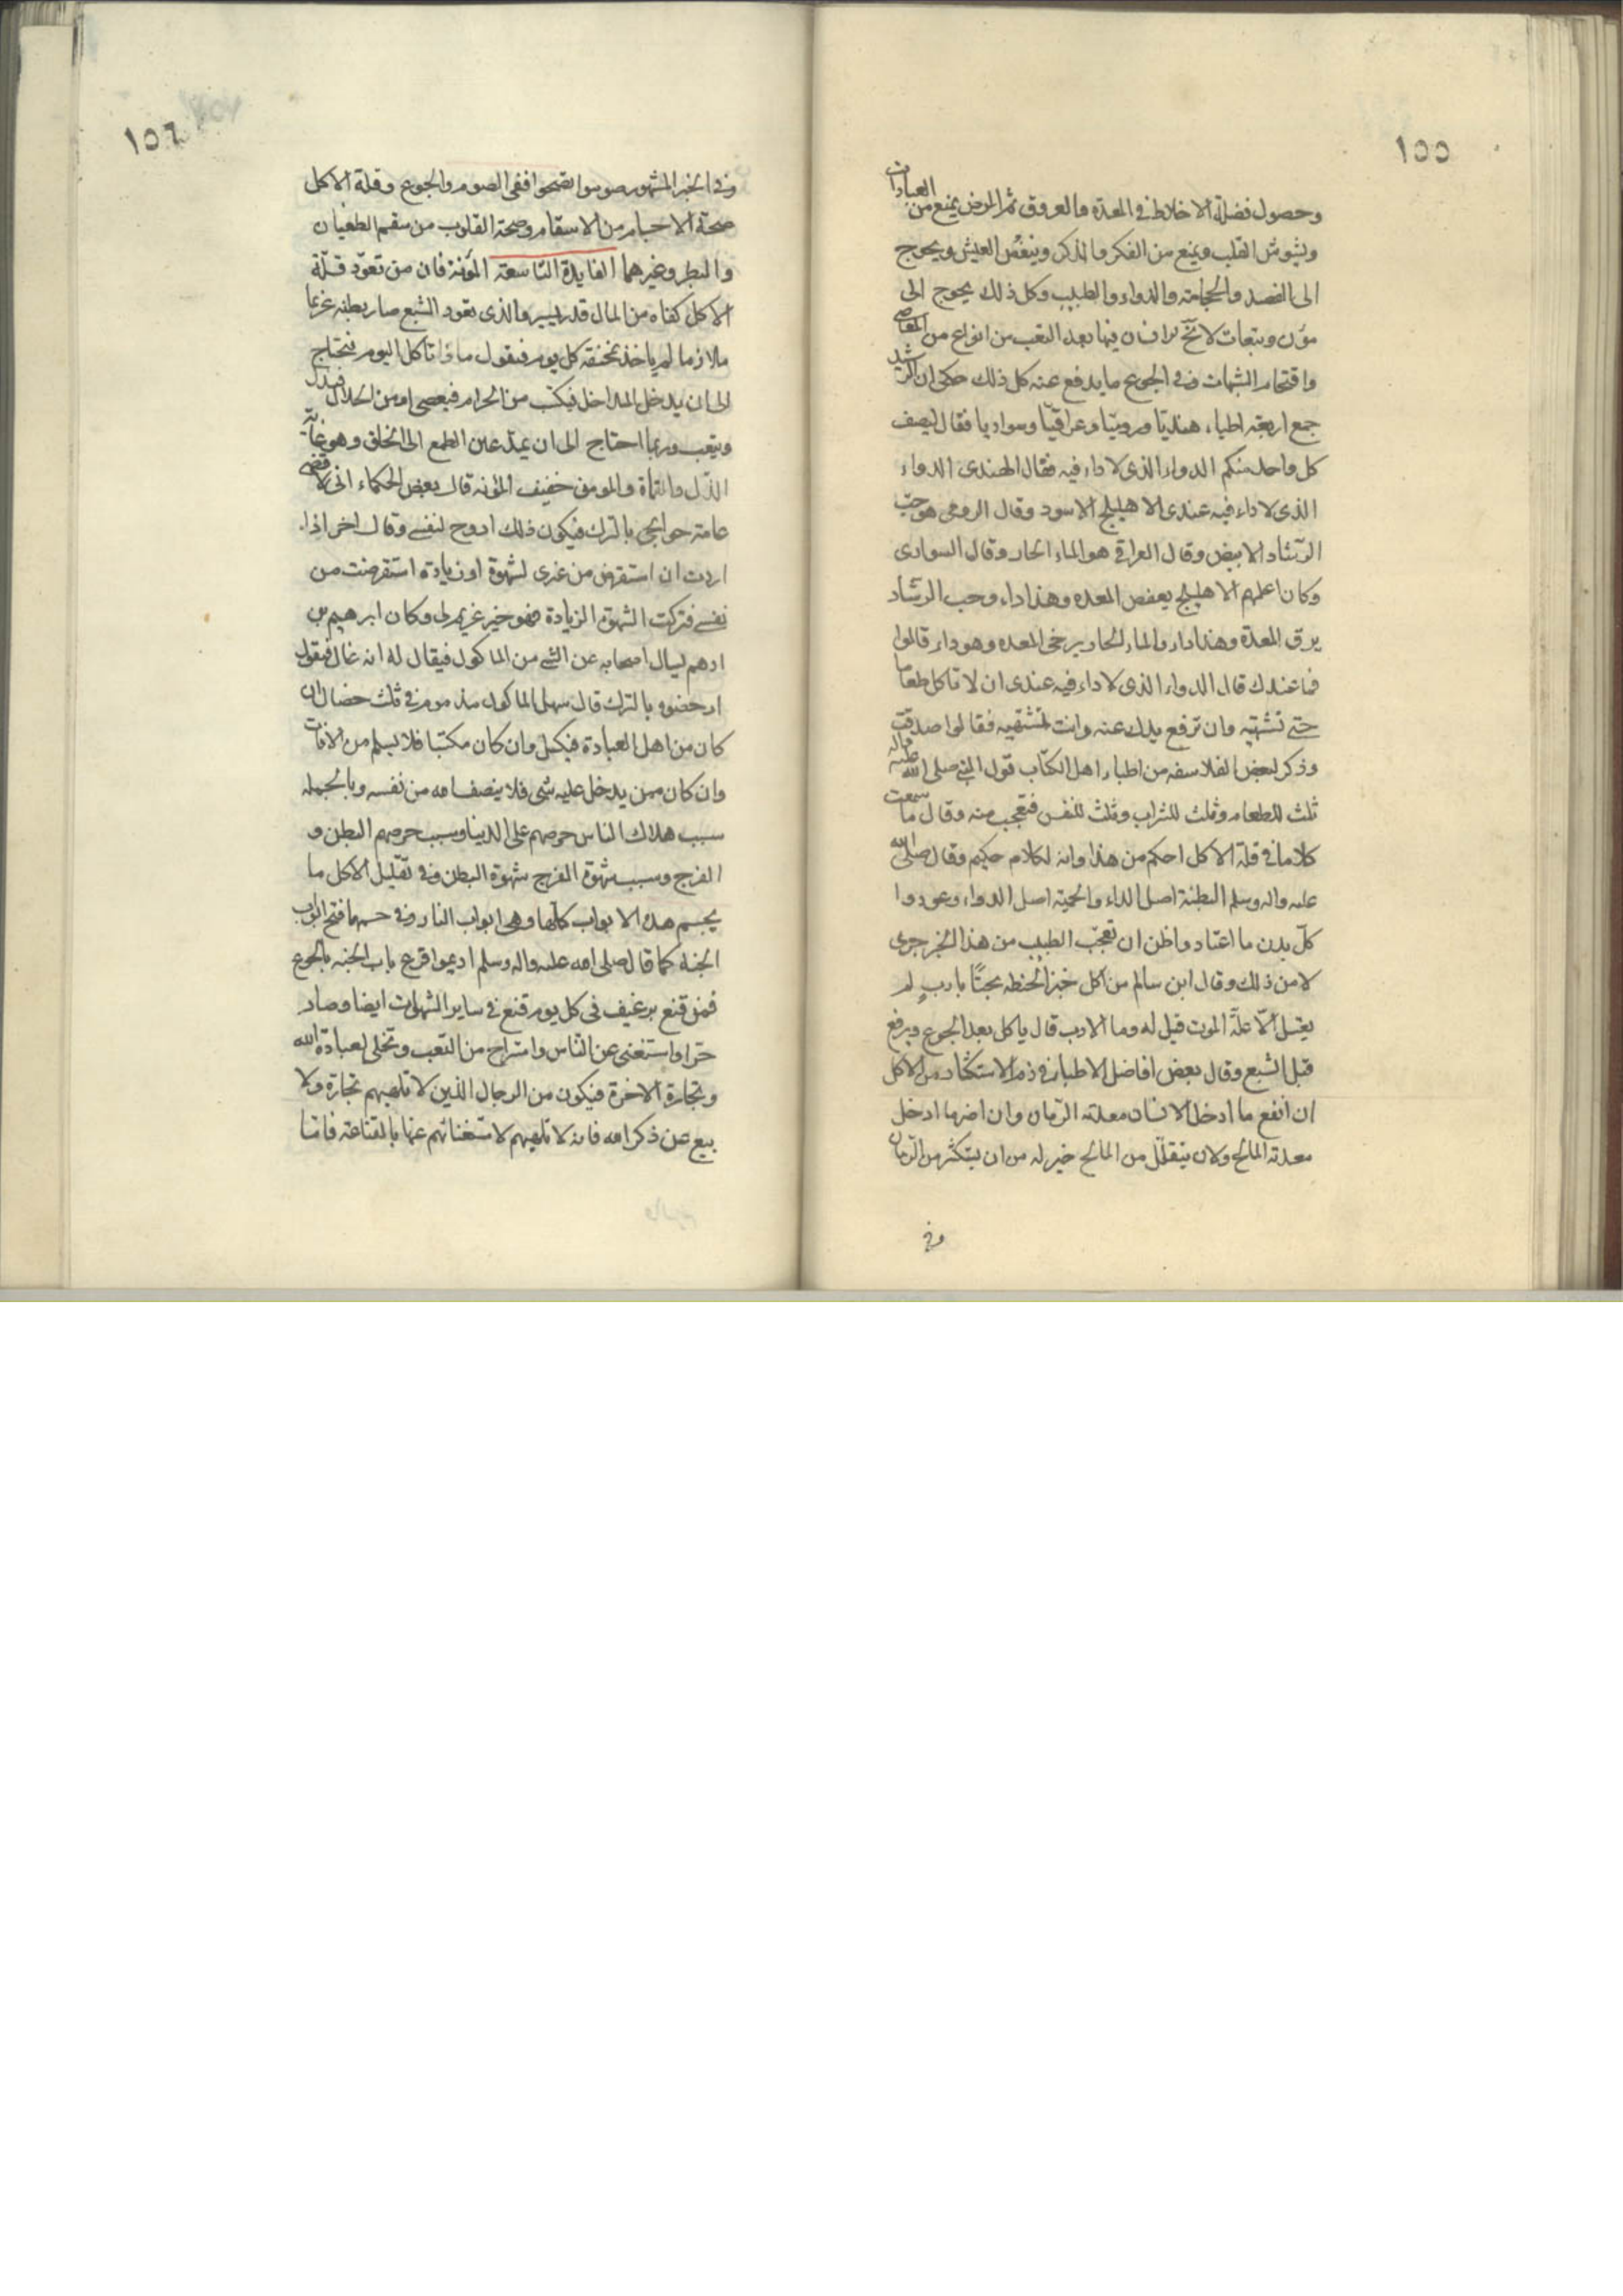 ١٥٥
وحصول فضلة الاخلاط في المعدة والعروق ثم المرض يمنع من العبادات
ويشوش القلب ويمنع من الفكر والذكر وينغص العيش ويحوج
الى الفصد والحجامة والدواء والطبيب وكل ذلك يحوج الى
مؤن وتبعات لا يخ انسان فيها بعد التعب من انواع من المعاصى
واقتحام الشهات وفي الجوع ما يدفع عنه كل ذلك حكى ان الرشيد
جمع اربعة اطباء هنديا وروميا وعراقيا وسواديا فقال ليصف
كل واحد منكم الدواء الذى لا داء فيه فقال الهندى الدواء
الذى لا داء فيه عندى الاهليلج الاسود وقال الرومى هو حب
الرشاد الابيض وقال العراقي هو الماء الحار وقال السوادى
وكان اعلمهم الاهليلج يعفص المعده وهذا داء وحب الرشاد
يرق المعدة وهذا داء والماء الحار يرخى المعده وهو داء قالوا
فما عندك قال الدواء الذى لا داء فيه عندى ان لا تاكل طعاما
حتى تشتهيه وان ترفع يدك عنه وانت تشتهيه فقالوا صدقت
وذكر لبعض الفلاسفه من اطباء اهل الكتاب قول النبي صلى الله عليه واله
ثلث للطعام وثلث للشراب وثلث للنفس فتعجب منه وقال ما سمعت
كلاما في قلة الاكل احكم من هذا وانه لكلام حكيم وقال صلى الله
عليه واله وسلم البطنة اصل الداء والحمية اصل الدواء وعودوا
كل بدن ما اعتاد واظن ان تعجب الطبيب من هذا الخبر جرى
لا من ذلك وقال ابن سالم من اكل خبز الحنطه بحتا بادب لم
يعتل الا علة الموت قيل له وما الادب قال ياكل بعد الجوع ويرفع
قبل الشبع وقال بعض افاضل الاطباء في ذم الاستكثار من الاكل
ان انفع ما ادخل الانسان معدته الرمان وان اضر ما ادخل
معدته المالح ولان يتقلل من المالح خير له من ان يستكثر من الرمان
وفي
١٥٦
وفي الخبر المشهور صوموا تصحوا ففى الصوم والجوع وقلة الاكل
صحة الاجسام من الاسقام وصحة القلوب من سقم الطغيان
والبطر وغيرهما الفايدة التاسعة المؤنة فان من تعود قلة
الاكل كفاه من المال قدر يسير والذى تعود الشبع صار بطنه غريما
ملازما له ياخذ بمخنقه كل يوم فيقول ماذا تاكل اليوم فيحتاج
الى ان يدخل المداخل فيكتسب من الحرام فيعصى او من الحلال فيذل
ويتعب وربما احتاج الى ان يمد عين الطمع الى الخلق وهو غاية
الذل والقماة والمومن خفيف المؤنه قال بعض الحكماء انى لاقضى
عامة حوايجى بالترك فيكون ذلك اروح لنفسى وقال اخر اذا
اردت ان استقرض من غيرى لشهوة او زيادة استقرضت من
نفسى فتركت الشهوة الزيادة فهو خير غريم لى وكان ابرهيم بن
ادهم يسال اصحابه عن الشى من الماكول فيقال له انه غال فيقول
ارخصوه بالترك قال سهل الماكول مذموم في ثلث خصال ان
كان من اهل العبادة فيكسل وان كان مكتسبا فلا يسلم من الافات
وان كان ممن يدخل عليه شى فلا ينصف الله من نفسه وبالجمله
سبب هلاك الناس حرصهم على الدنيا وسبب حرصهم البطن و
الفرج وسبب شهوة الفرج شهوة البطن وفي تقليل الاكل ما
يحسم هذه الابواب كلها وهى ابواب النار وفي حسمها فتح ابواب
الجنة كما قال صلى الله عليه واله وسلم اديموا قرع باب الجنه بالجوع
فمن قنع برغيف في كل يوم قنع في ساير الشهوات ايضا وصار
حرا واستغنى عن الناس واستراح من التعب وتخلى لعبادة الله
وتجارة الاخرة فيكون من الرجال الذين لا تلهيهم تجارة ولا
بيع عن ذكر الله فانه لا تلهيهم لاستغنائهم عنها بالقناعة فاما